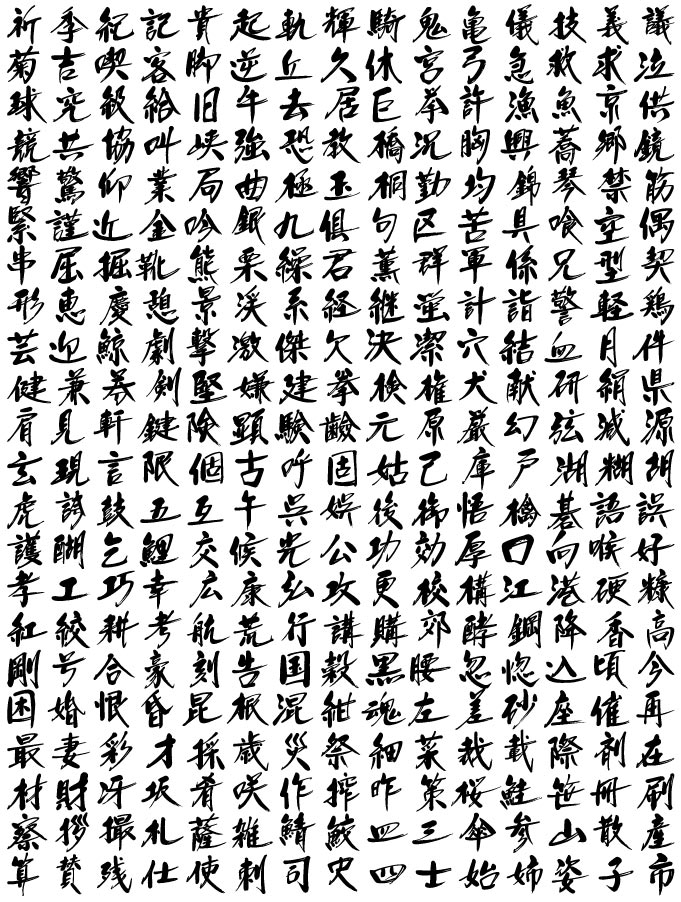 祈季紀記貴起軌輝騎鬼亀儀技義議
菊吉喫客脚逆丘久休宮弓急救求泣
球究級給旧牛去居巨挙許漁魚京供
競共協叫峡強恐教橋況胸興蕎郷鏡
響驚仰業局曲極玉桐勤均錦琴禁筋
緊謹近金吟銀九倶句区苦具喰空偶
串屈掘靴熊栗繰君薫群軍係兄型契
形恵慶憩景渓系経継蛍計詣警軽鶏
芸迎鯨劇撃激傑欠決潔穴結血月件
健兼券剣堅嫌建拳検権犬献研絹県
肩見軒鍵険顕験鹸元原厳幻弦減源
玄現言限個古呼固姑己庫戸湖糊胡
虎誇鼓五互午呉娯後御悟檎碁語誤
護醐乞鯉交候光公功効厚口向喉好
孝工巧幸広康弘攻更校構江港硬糠
紅絞耕考航荒行講購郊酵鋼降香高
剛号合豪刻告国穀黒腰忽惚込頃今
困婚恨昏昆根混紺魂左差砂座催再
最妻彩才採歳災祭細菜栽載際剤在
材財冴坂肴咲作搾昨策桜鮭笹冊刷
察拶撮札薩雑鯖鮫皿三傘参山散産
算賛残仕使刺司史四士始姉姿子市